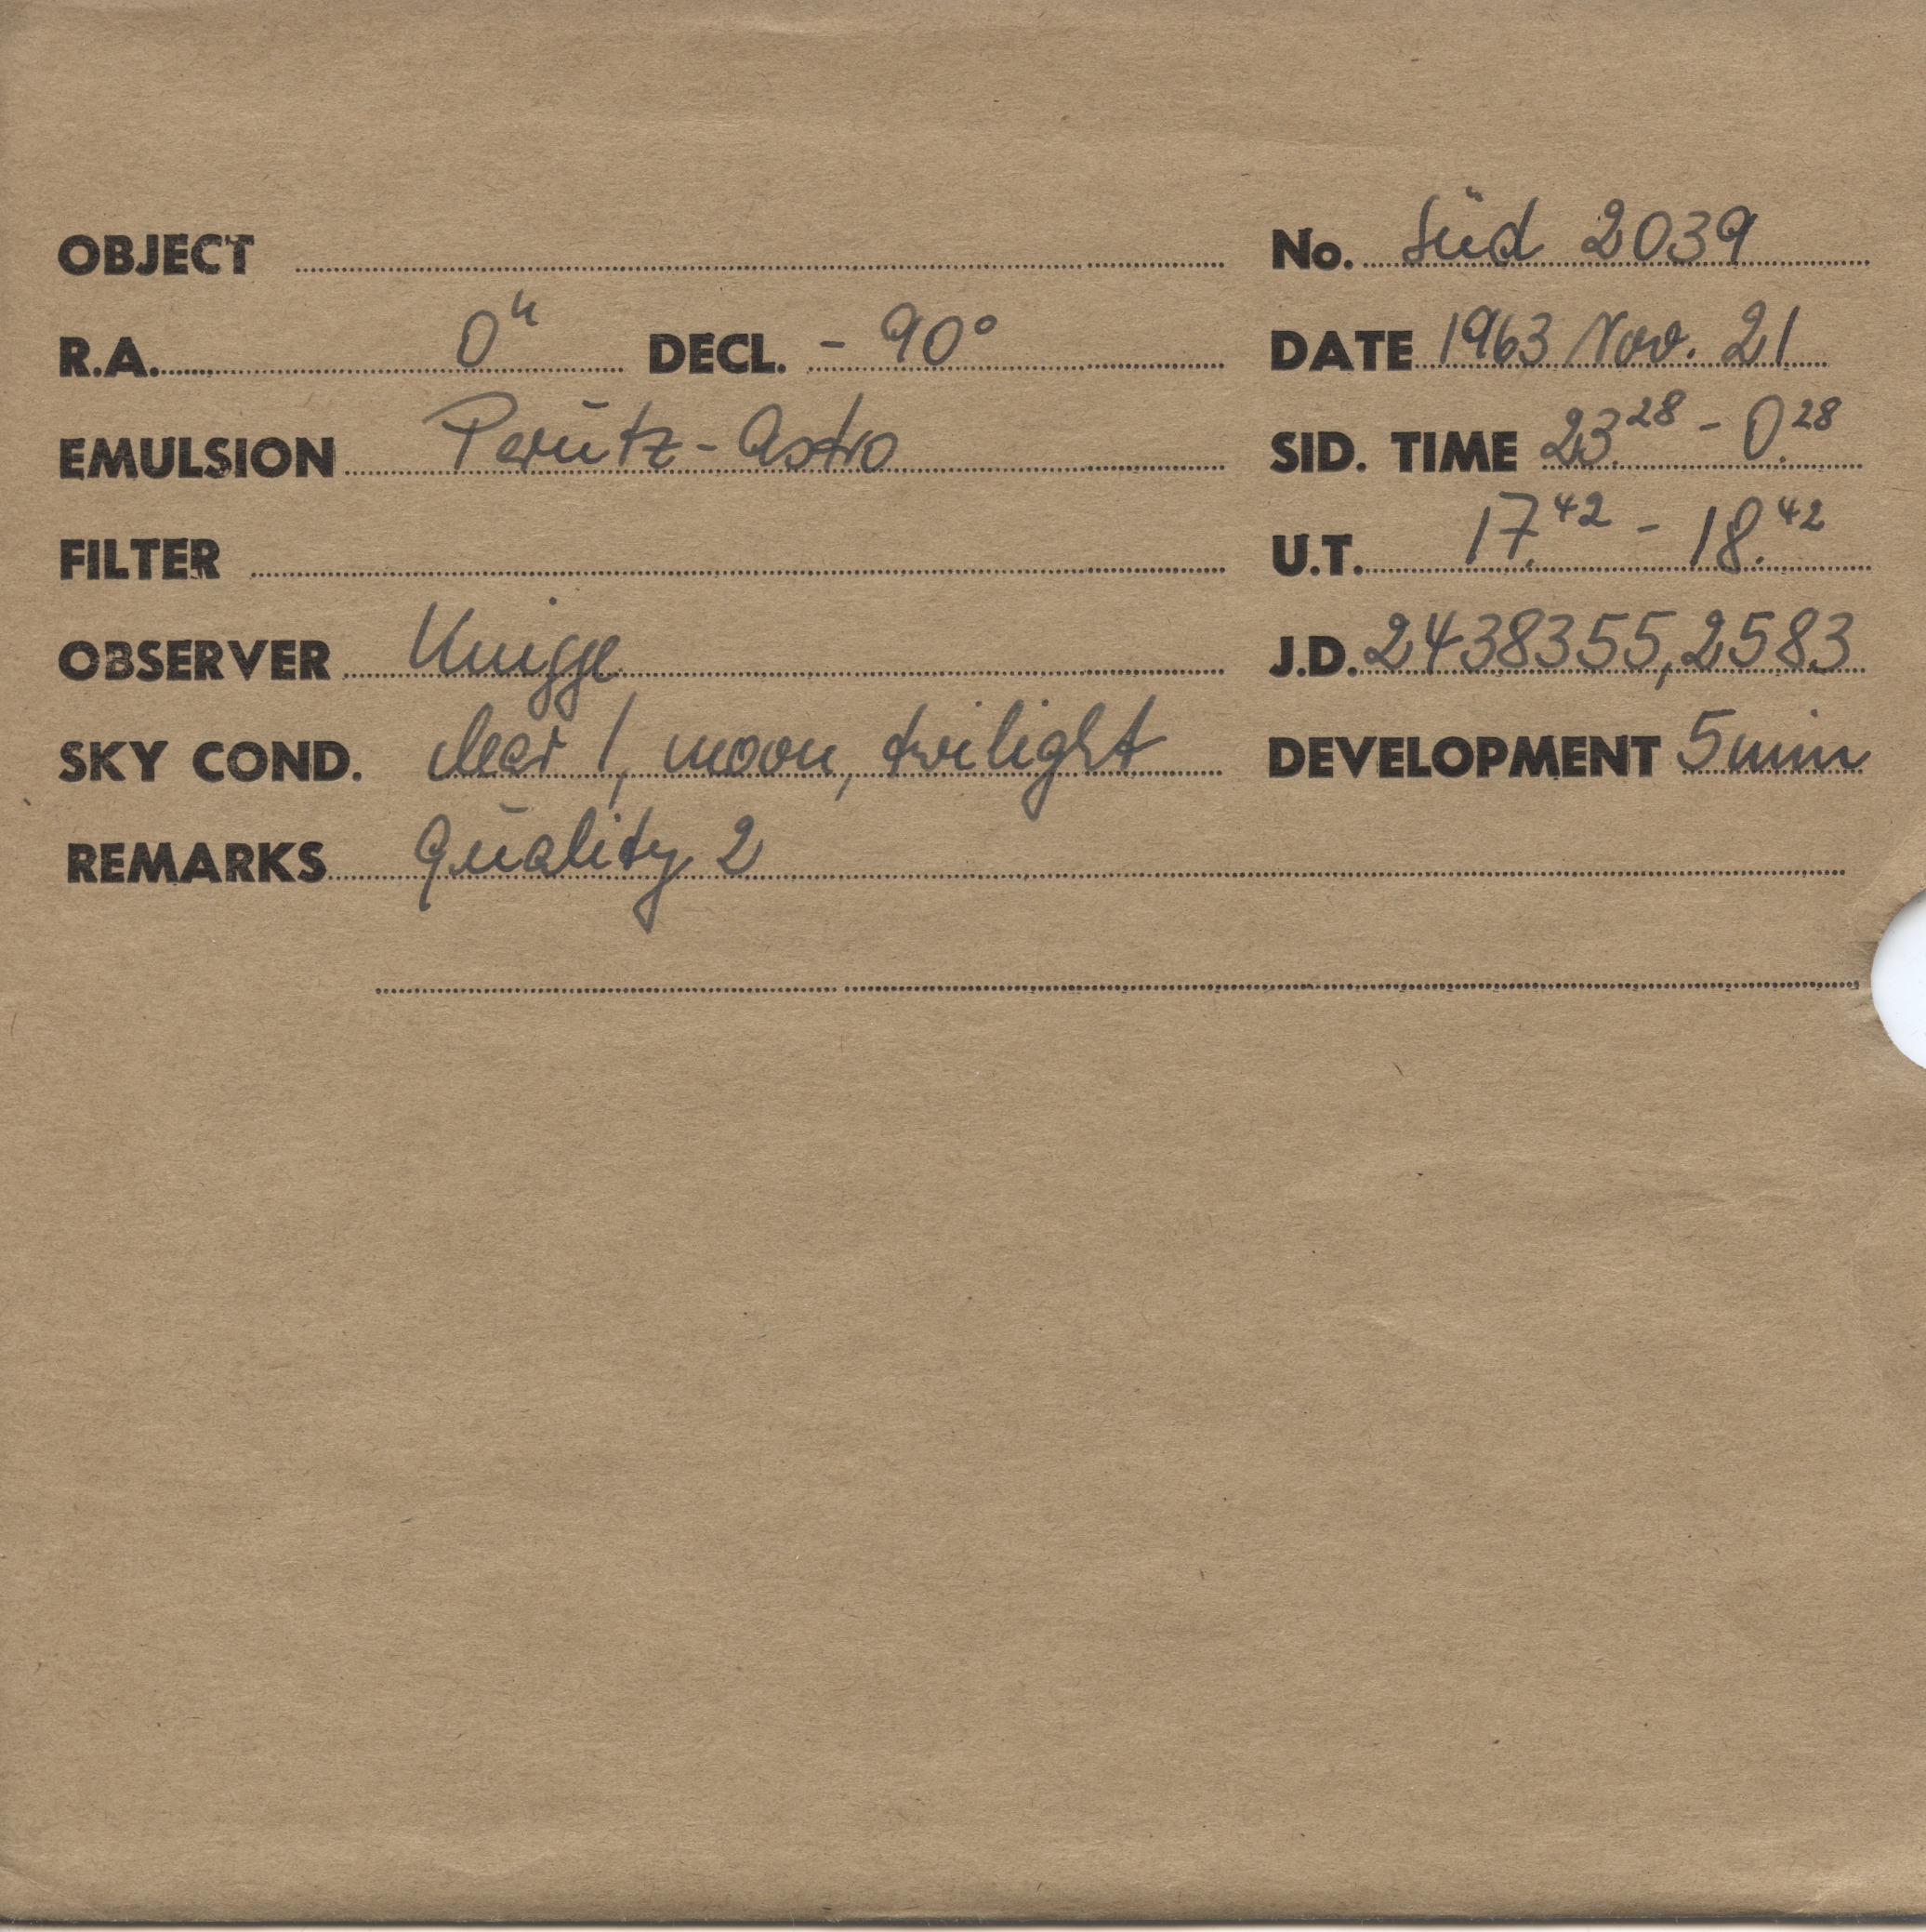 OBJECT No. Süd 2039
R.A. 0h DECL. - 90° DATE 1963 Nov. 21
EMULSION Perutz-Astro SID. TIME 23.28 - 0.28
FILTER U.T. 17.42 - 18.42
OBSERVER Knigge J.D. 2438355,2583
SKY COND. clear 1, moon, twilight DEVELOPMENT 5 min
REMARKS Quality 2